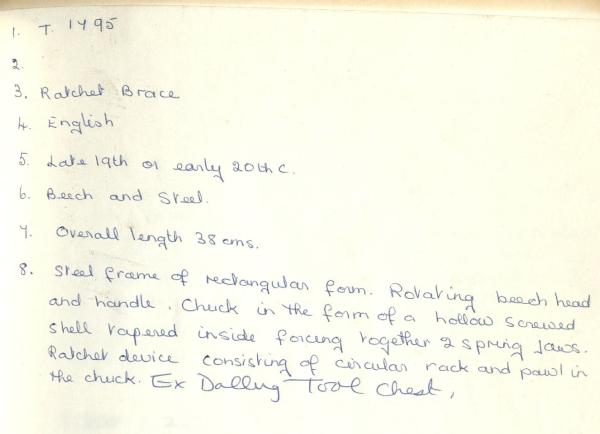 1. T. 1495
2.
3. Ratchet Brace
4. English
5. Late 19th or early 20th C.
6. Beech and Steel.
7. Overall length 38 cms.
8. Steel frame of rectangular form. Rotating beech head
and handle. Chuck in the form of a hollow screwed
shell tapered inside forcing together 2 spring jaws.
Ratchet device consisting of circular rack and pawl in
the chuck. Ex Dalling Tool Chest,